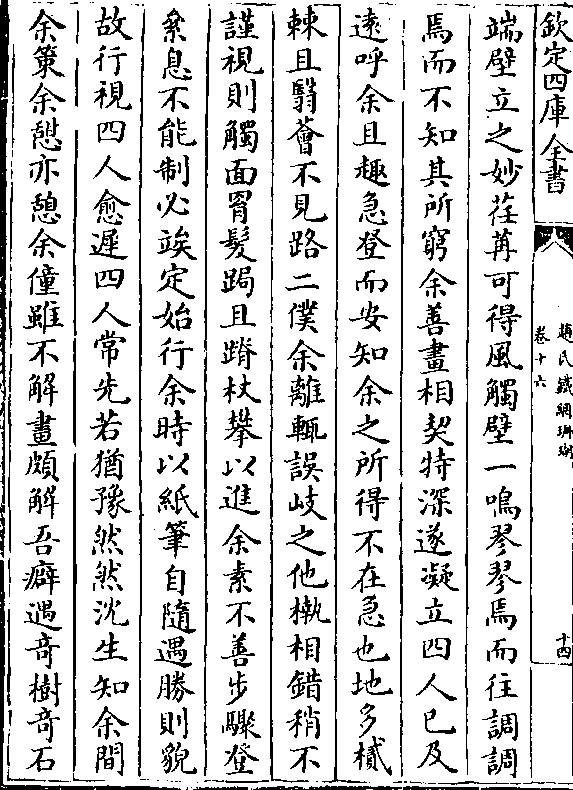 欽定四庫全書
趙氏鐵網珊瑚
卷十六
十四
端壁立之妙荏苒可得風觸壁一鳴琴琴焉而往調調
焉而不知其所窮余善畫相契特深遂凝立四人已及
遠呼余且趣急登而安知余之所得不在急也地多樲
棘且翳薈不見路二僕余離輒誤岐之他檄相錯稍不
謹視則觸面罥髮跼且蹐杖攀以進余素不善步驟登
衆息不能制必竢定始行余時以紙筆自隨遇勝則貌
故行視四人愈遲四人常先若猶豫然然沈生知余間
余策余憇亦憩余僮雖不解畫頗解吾癖遇竒樹竒石